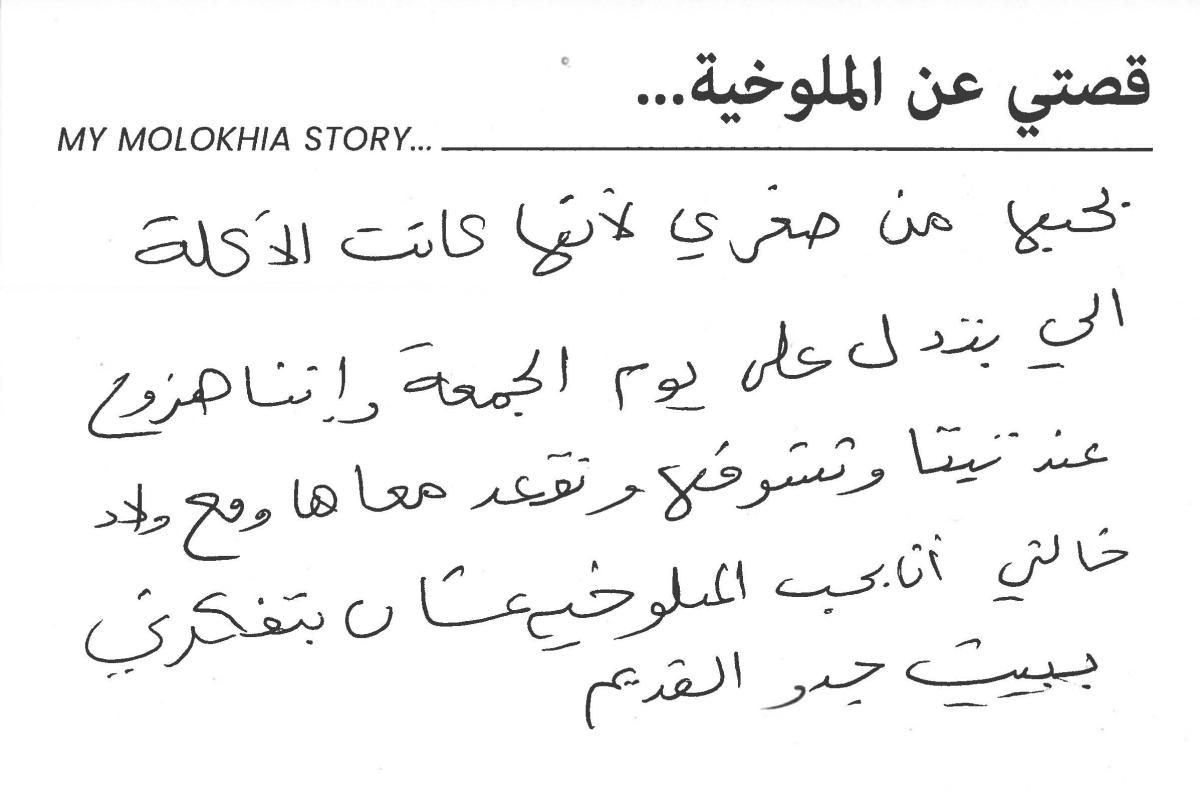 قصتي عن الملوخية...
MY MOLOKHIA STORY...
بحبها من صغري لأنها كانت الأكلة
الي بتدل على يوم الجمعة وإننا هنروح
عند تيتا ونشوفها ونقعد معاها ومع ولاد
خالتي أنا بحب الملوخيه عشان بتفكرني
ببيت جدو القديم